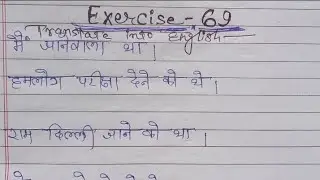 Exercise - 69
Translate into English
मैं जानेवाला था ।
हमलोग परीक्षा देने को थे ।
राम दिल्ली जाने को था ।